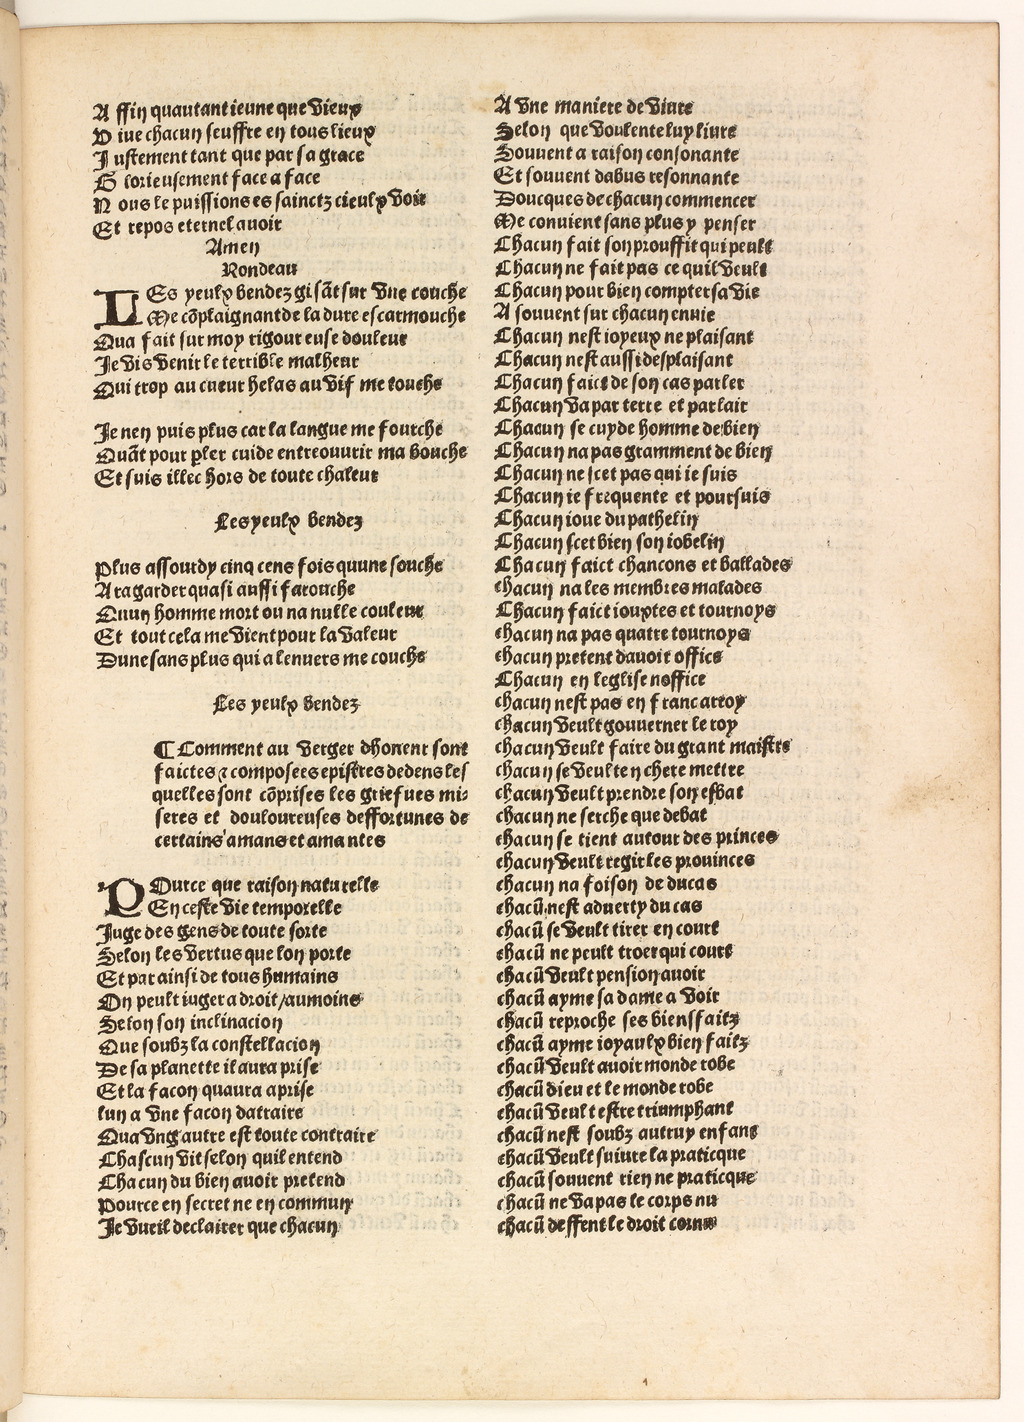 A ffin quautant ieune que vieux
V iue chacun seuffre en tous lieux
I ustement tant que par sa grace
G lorieusement face a face
N ous le puissions es sainctz cieulx voir
Et repos eternel auoir
Amen
Rondeau
LEs yeulx bendez gisãt sur vne couche
Me cõplaignant de la dure escarmouche
Qua fait sur moy rigoureuse douleur
Je vis venir le terrible malheur
Qui trop au cueur helas au vif me touche
Je nen puis plus car la langue me fourche
Quãt pour p̱ler cuide entreouurir ma bouche
Et suis illec hors de toute chaleur
Les yeulx bendez
Plus assourdy cinq cens fois quune souche
A ragarder quasi aussi farouche
Quun homme mort ou na nulle couleur
Et tout cela me vient pour la valeur
Dune sans plus qui a lenuers me couche
Les yeulx bendez
¶ Comment au verger dhonent sont
faictes ⁊ composees epistres dedens les
quelles sont cõprises les griefues mi⸗
seres et douloureuses deffortunes de
certains amans et amantes
POurce que raison naturelle
En ceste vie temporelle
Juge des gens de toute sorte
Selon les vertus que lon porte
Et par ainsi de tous humains
On peult iuger a droit/aumoins
Selon son inclinacion
Que soubz la constellacion
De sa planette il aura prise
Et la facon quaura aprise
lun a vne facon dattraire
Qua vng autre est toute contraire
Chascun vit selon quil entend
Chacun du bien auoir pretend
Pource en secret ne en commun
Je vueil declairer que chacun
A vne maniere de viure
Selon que voulente luy liure
Souuent a raison consonante
Et souuent dabus resonnante
Doucques de chacun commencer
Me conuient sans plus y penser
Chacun fait son prouffit qui peult
Chacun ne fait pas ce quil veult
Chacun pour bien compter sa vie
A souuent sur chacun enuie
Chacun nest ioyeux ne plaisant
Chacun nest aussi desplaisant
Chacun faict de son cas parler
Chacun va par terre et par lair
Chacun se cuyde homme de bien
Chacun na pas gramment de bien
Chacun ne scet pas qui ie suis
Chacun ie frequente et poursuis
Chacun ioue du pathelin
Chacun scet bien son iobelin
Chacun faict chancons et ballades
chacun na les membres malades
Chacun faict iouxtes et tournoys
chacun na pas quatre tournoys
chacun pretent dauoir office
Chacun en leglise noffice
chacun nest pas en franc arroy
chacun veult gouuerner le roy
chacun veult faire du grant maistre
chacun se veult en chere mettre
chacun veult prendre son esbat
chacun ne serche que debat
chacun se tient autour des princes
chacun veult regir les prouinces
chacun na foison de ducas
chacũ nest aduerty du cas
chacũ se veult tirer en court
chacũ ne peult troer qui court
chacũ veult pension auoir
chacũ ayme sa dame a voir
chacũ reproche ses biensfaitz
chacũ ayme ioyaulx bien faitz
chacũ veult auoir monde robe
chacũ dieu et le monde robe
chacũ veult estre triumphant
chacũ nest soubz autruy enfant
chacũ veult suiure la praticque
chacũ souuent rien ne praticque
chacũ ne va pas le corps nu
chacũ deffent le droit cornu